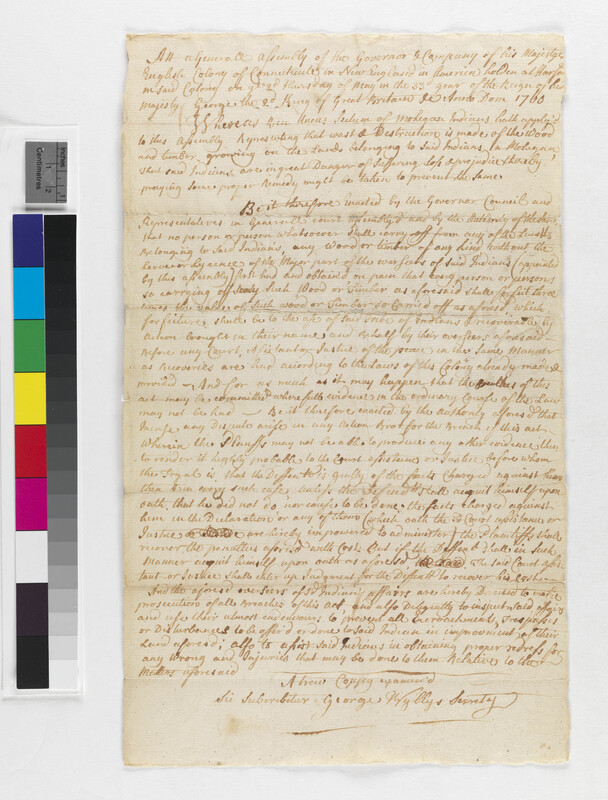 Att a Generall Assembly of the Governor & Company of his Majestys
English Colony of Connecticutt in New England in America holden at Hartford
in said Colony on ye 2d Thursday of May in the 33d year of the Reign of his
Majesty George the 2d King of Great Britain &c Anno Dom 1760
Whereas Ben Uncas Sachem of Mohegan Indians hath apply'd
to this Assembly Representing that wast & Destruction is made of the Wood
and timber growing on the Lands belonging to Said Indians in Mohegan
that said Indians are in great Danger of Suffering loss & prejudice thereby
praying some proper Remedy might be taken to prevent the Same
Be it therefore enacted by the Governor Council and
Representatives in General Court assembled and by the Authority of the Same
that no person or persons whatsoever shall carry off from any of the Lands
Belonging to Said Indians, any Wood or timber of any kind without the
leave or Lycence of the Major part of the overseers of said Indians (appointed
by this assembly) first had and obtained on pain that every person or persons
so carrying off such Wood or Timber as aforesaid shall forfeit three
times the value of such wood or Timber so Carried off as aforesd which
forfeiture shall be to the use of said Indians & recoverable by
Action brought in their name and behalf by their overseers aforesaid
Before any Court, Assistant or Justice of the peace in the Same Manner
as Recoveries are had according to the Laws of this Colony already made &
provided - And for as much as it may happen that the breaches of this
act may be committed where full evidence in the ordinary Course of the Law
may not be had - Be it therefore enacted by the Authority aforesd that
in case any Dispute arise in any action Brot for the Breach of this act
Wherein the Plaintiffs may not be able to produce any other evidence than
to render it highly probable to the Court assistant or Justice before whom
the Tryal is, that the Deffendt is guilty of the facts Charged against him
then & in every such case unless the Deffendt shall acquit himself upon
oath, that he did not do, nor cause to be done, the facts charged against
him in the Declaration or any of them (which oath the sd Court assistance or
Justice are hereby empowered to administer) the Plaintiffs shall
recover the penalties aforesd with Cost. But if the Deffendt shall in such
Manner acquit himself upon oath as aforesd, the said Court assis
tant or Justice shall enter up Judgment for the Deffendt to recover his Cost
And the aforesd overseers of sd Indians affairs are hereby Directed to make
prosecution of all Breaches of this Act, and also Diligently to inspect said affairs
and use their utmost endeavours to prevent all incroachment, Trespasses
or Disturbances to be offer'd or done to said Indian in improvement of their
Land aforesd; also to assist said Indians in obtaining proper redress for
any Wrong and Injuries that may be done to them Relative to the
Matters aforesaid
A true Coppy examin'd
Sic Subscribitur George Wyllys Secrety
Centimetres
Inches